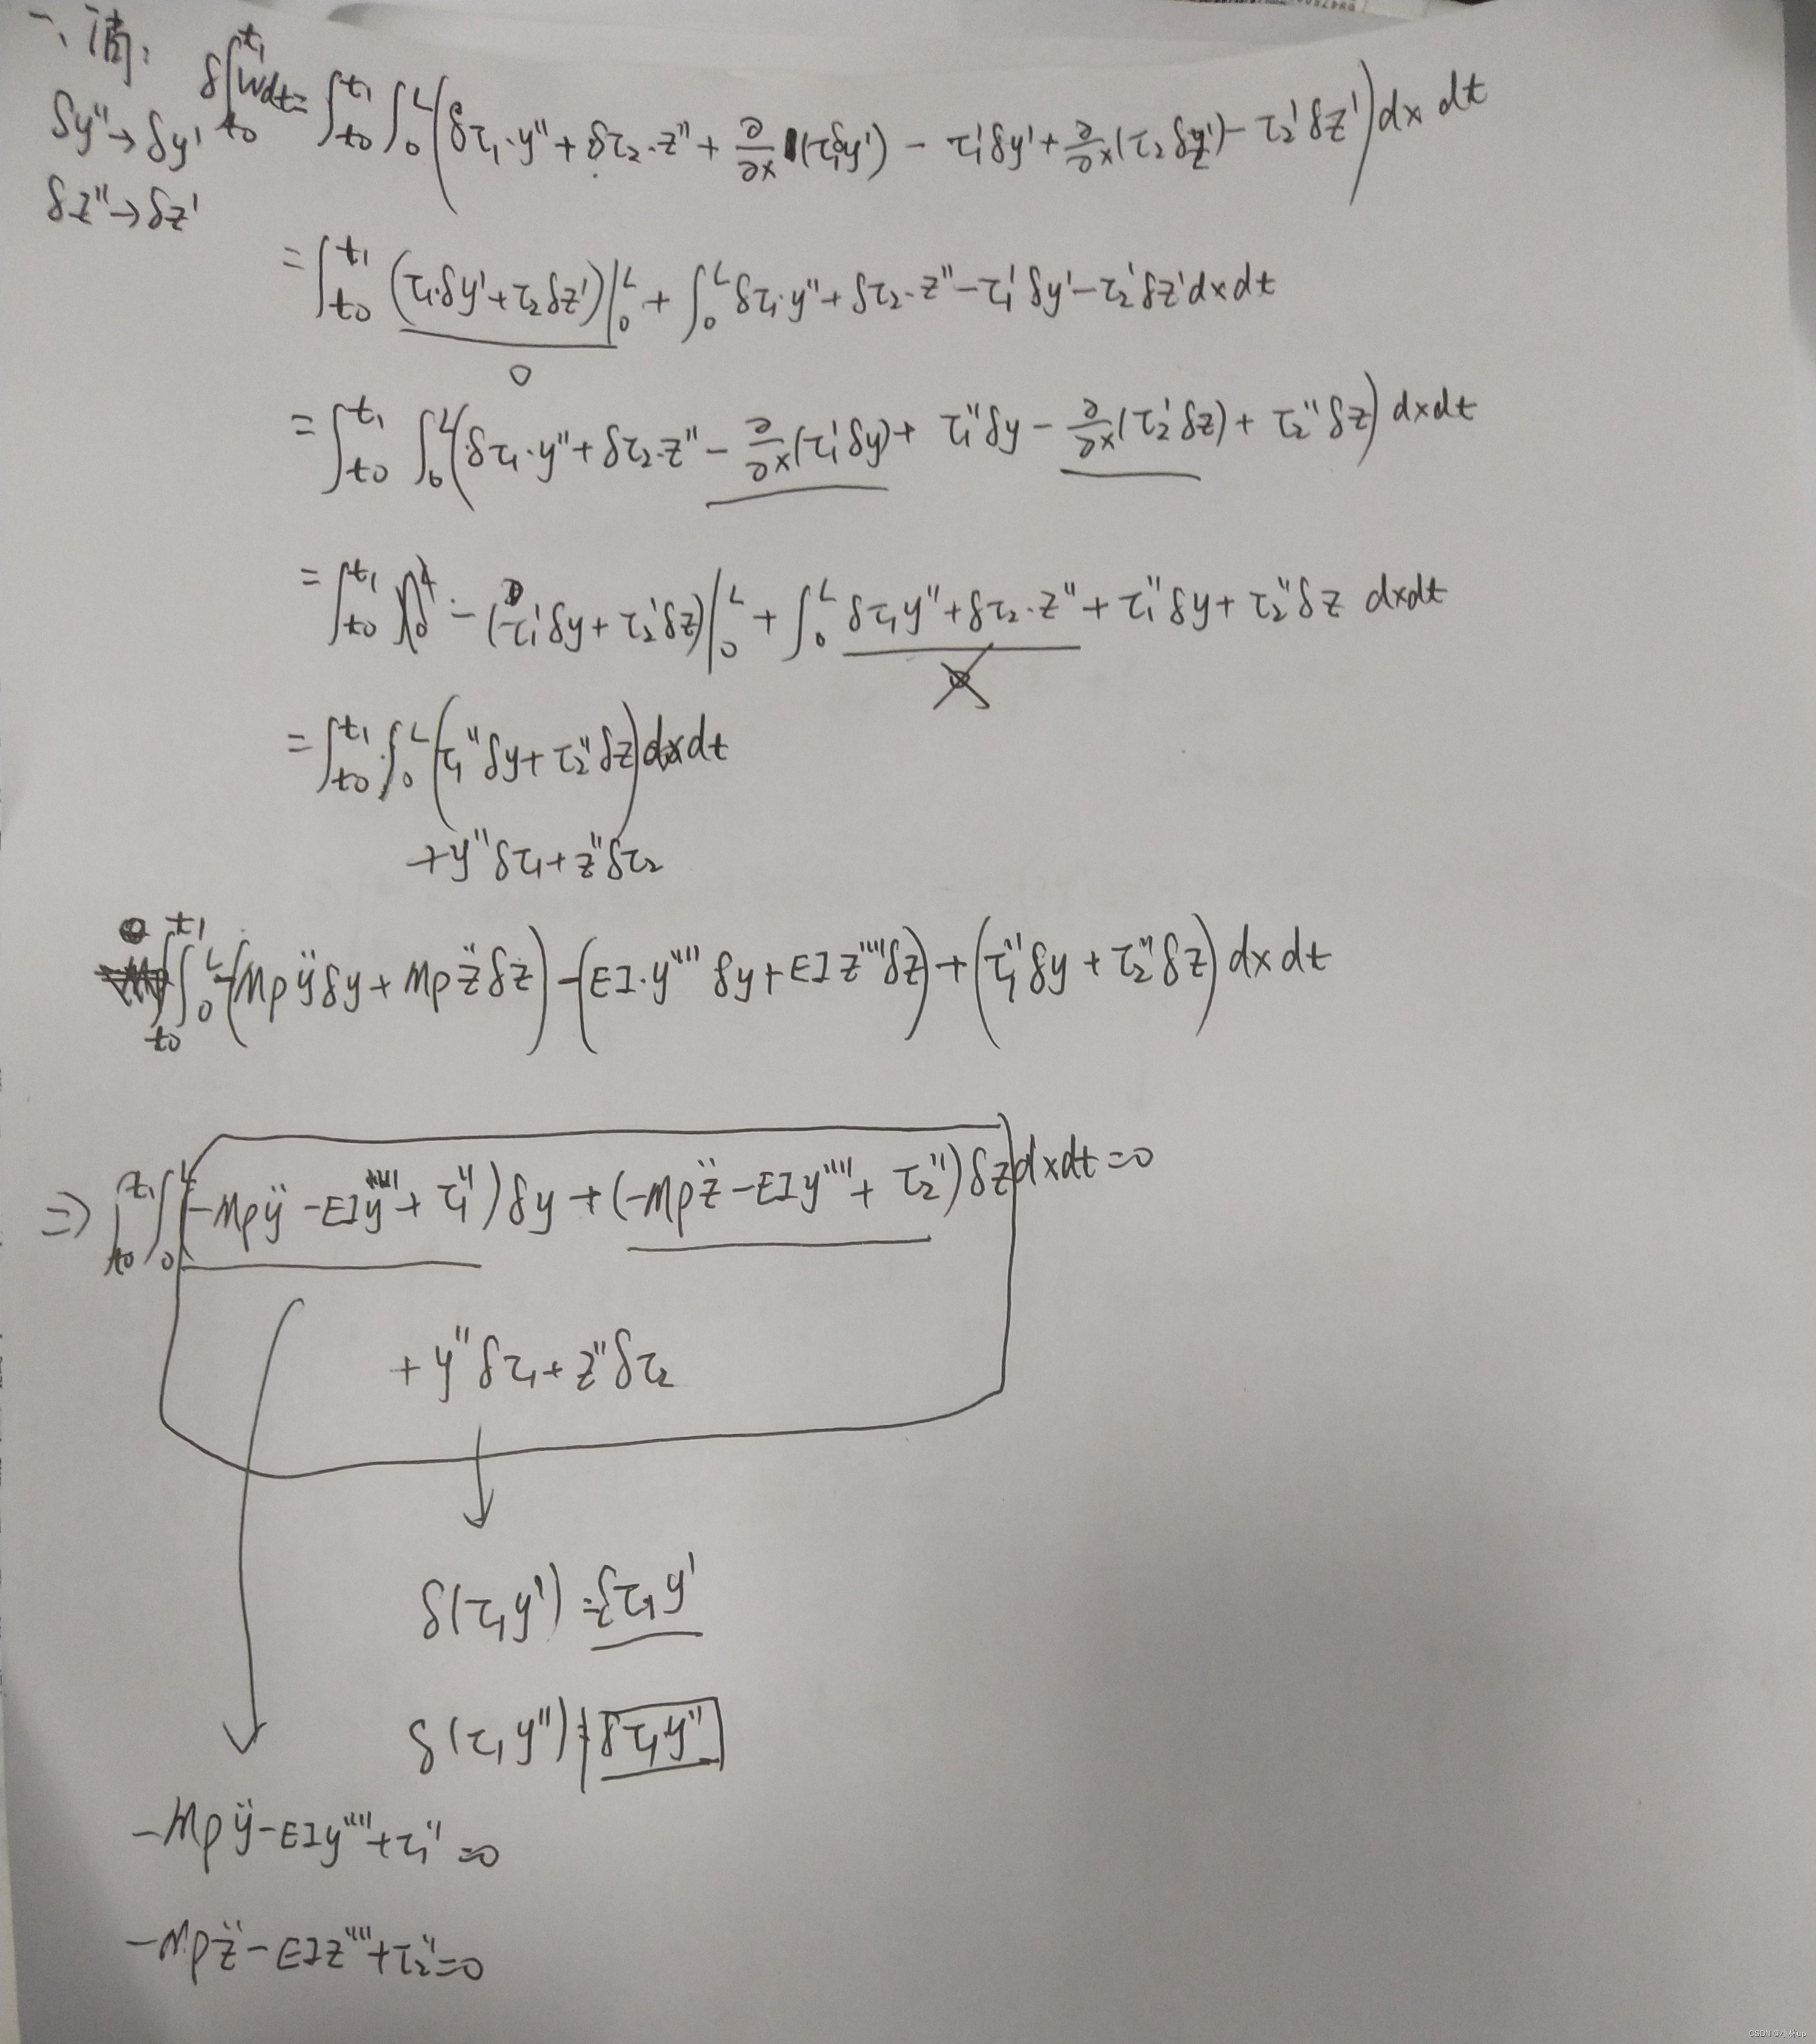 一、消:
δy''→δy'
δz''→δz'
δ∫_{t0}^{t1} Wdt = ∫_{t0}^{t1} ∫_0^L (δτ₁·y'' + δτ₂·z'' + ∂/∂x (τ₁δy') − τ₁'δy' + ∂/∂x (τ₂δz') − τ₂'δz') dx dt
= ∫_{t0}^{t1} (τ₁·δy' + τ₂δz')|_0^L + ∫_0^L δτ₁·y'' + δτ₂·z'' − τ₁'δy' − τ₂'δz' dxdt
0
= ∫_{t0}^{t1} ∫_0^L (δτ₁·y'' + δτ₂·z'' − ∂/∂x (τ₁'δy) + τ₁''δy − ∂/∂x (τ₂'δz) + τ₂''δz) dxdt
= ∫_{t0}^{t1} − (τ₁'δy + τ₂'δz)|_0^L + ∫_0^L δτ₁y'' + δτ₂·z'' + τ₁''δy + τ₂''δz dxdt
= ∫_{t0}^{t1} ∫_0^L (τ₁''δy + τ₂''δz) dxdt
+ y''δτ₁ + z''δτ₂
∫_{t0}^{t1} ∫_0^L −(Mpÿδy + Mpz̈δz) − (EI·y''''δy + EIz''''δz) + (τ₁''δy + τ₂''δz) dx dt
⇒ ∫_{t0}^{t1} ∫_0^L (−Mpÿ − EIy'''' + τ₁'')δy + (−Mpz̈ − EIy'''' + τ₂'')δz dxdt = 0
+ y''δτ₁ + z''δτ₂
δ(τ₁y') = δτ₁y'
δ(τ₁y'') = δτ₁y''
−Mpÿ − EIy'''' + τ₁'' = 0
−Mpz̈ − EIz'''' + τ₂'' = 0